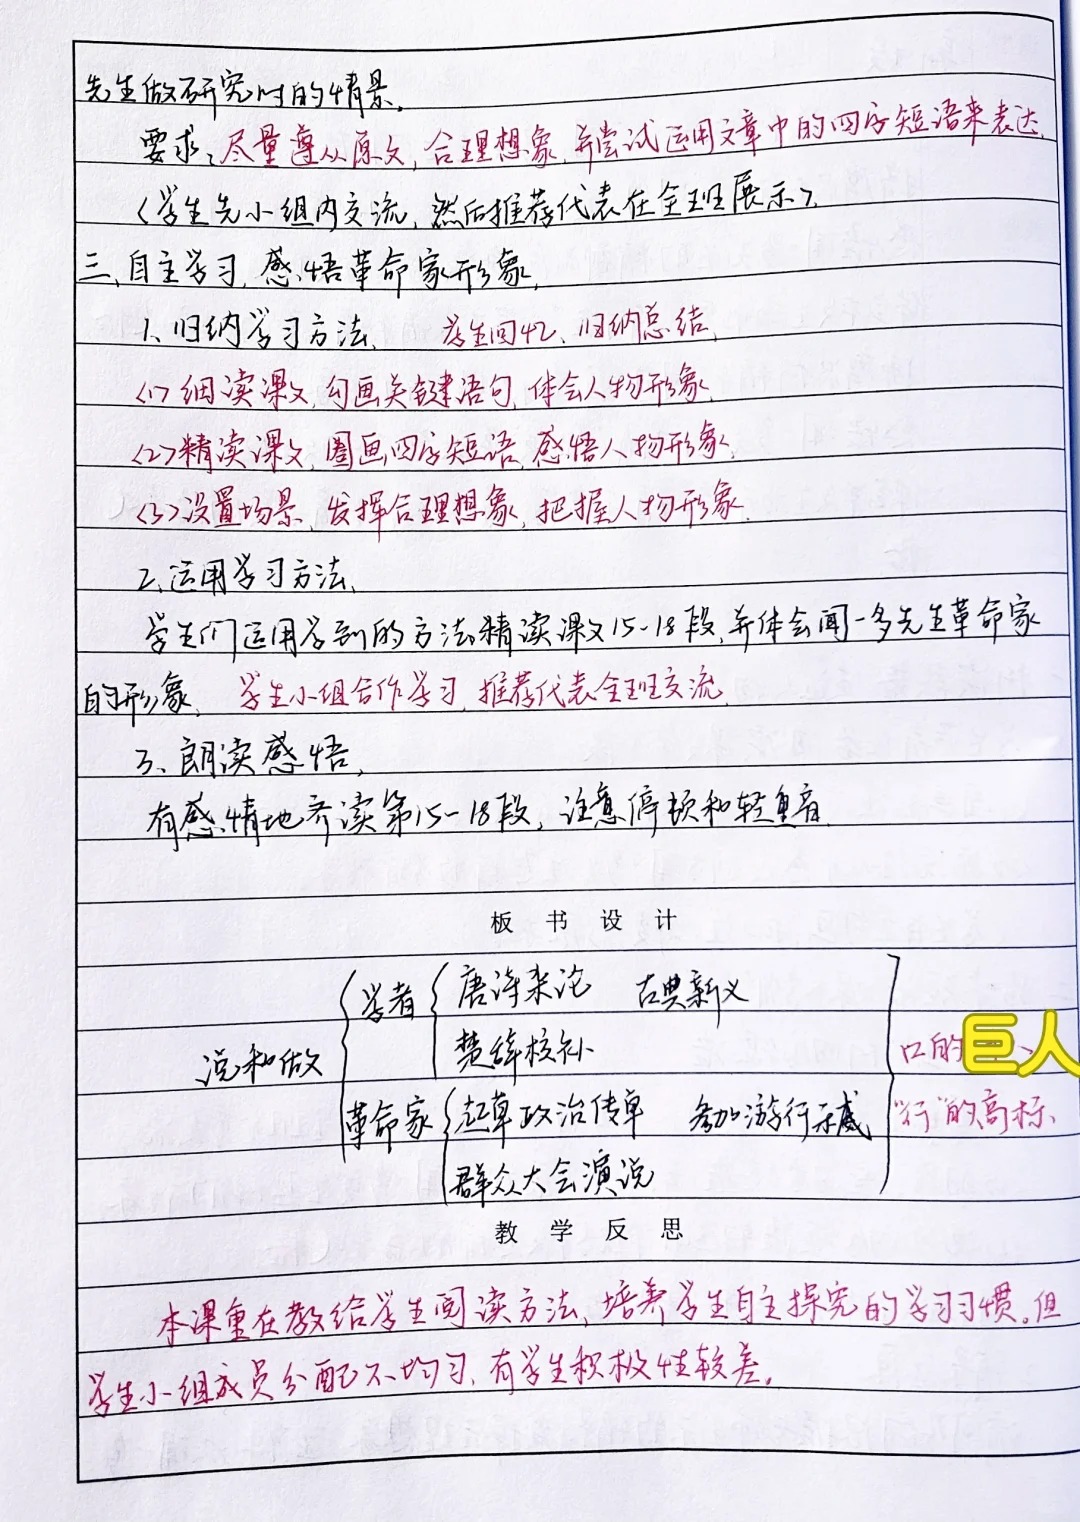 先生做研究时的情景。
要求：尽量遵从原文，合理想象，并尝试运用文章中的四字短语来表达。
（学生先小组内交流，然后推荐代表在全班展示）。
三、自主学习，感悟革命家形象。
1、归纳学习方法。 学生回忆、归纳总结。
（1）细读课文，勾画关键语句，体会人物形象。
（2）精读课文，圈画四字短语，感悟人物形象。
（3）设置场景，发挥合理想象，把握人物形象。
2、运用学习方法。
学生们运用学到的方法精读课文15-18段，并体会闻一多先生革命家
的形象。 学生小组合作学习，推荐代表全班交流。
3、朗读感悟。
有感情地齐读第15-18段，注意停顿和轻重音。
板书设计
说和做
学者 唐诗杂论 古典新义
楚辞校补
口的巨人、
革命家 起草政治传单 参加游行示威
“行”的高标、
群众大会演说
教学反思
本课重在教给学生阅读方法，培养学生自主探究的学习习惯。但
学生小组成员分配不均匀，有学生积极性较差。